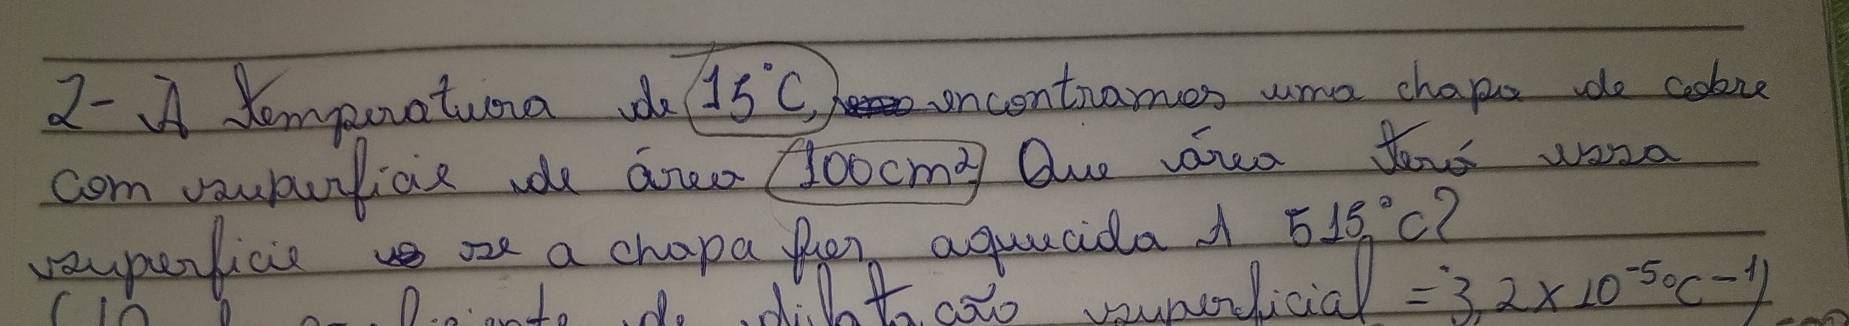 2- A temperatura de 15°C, encontramos uma chapa de cobre
com superficie de área 100cm² Que área terá essa
superficie se a chapa for aquecida A 515°C?
de dilatação superficial = 3,2x10⁻⁵°C⁻¹)